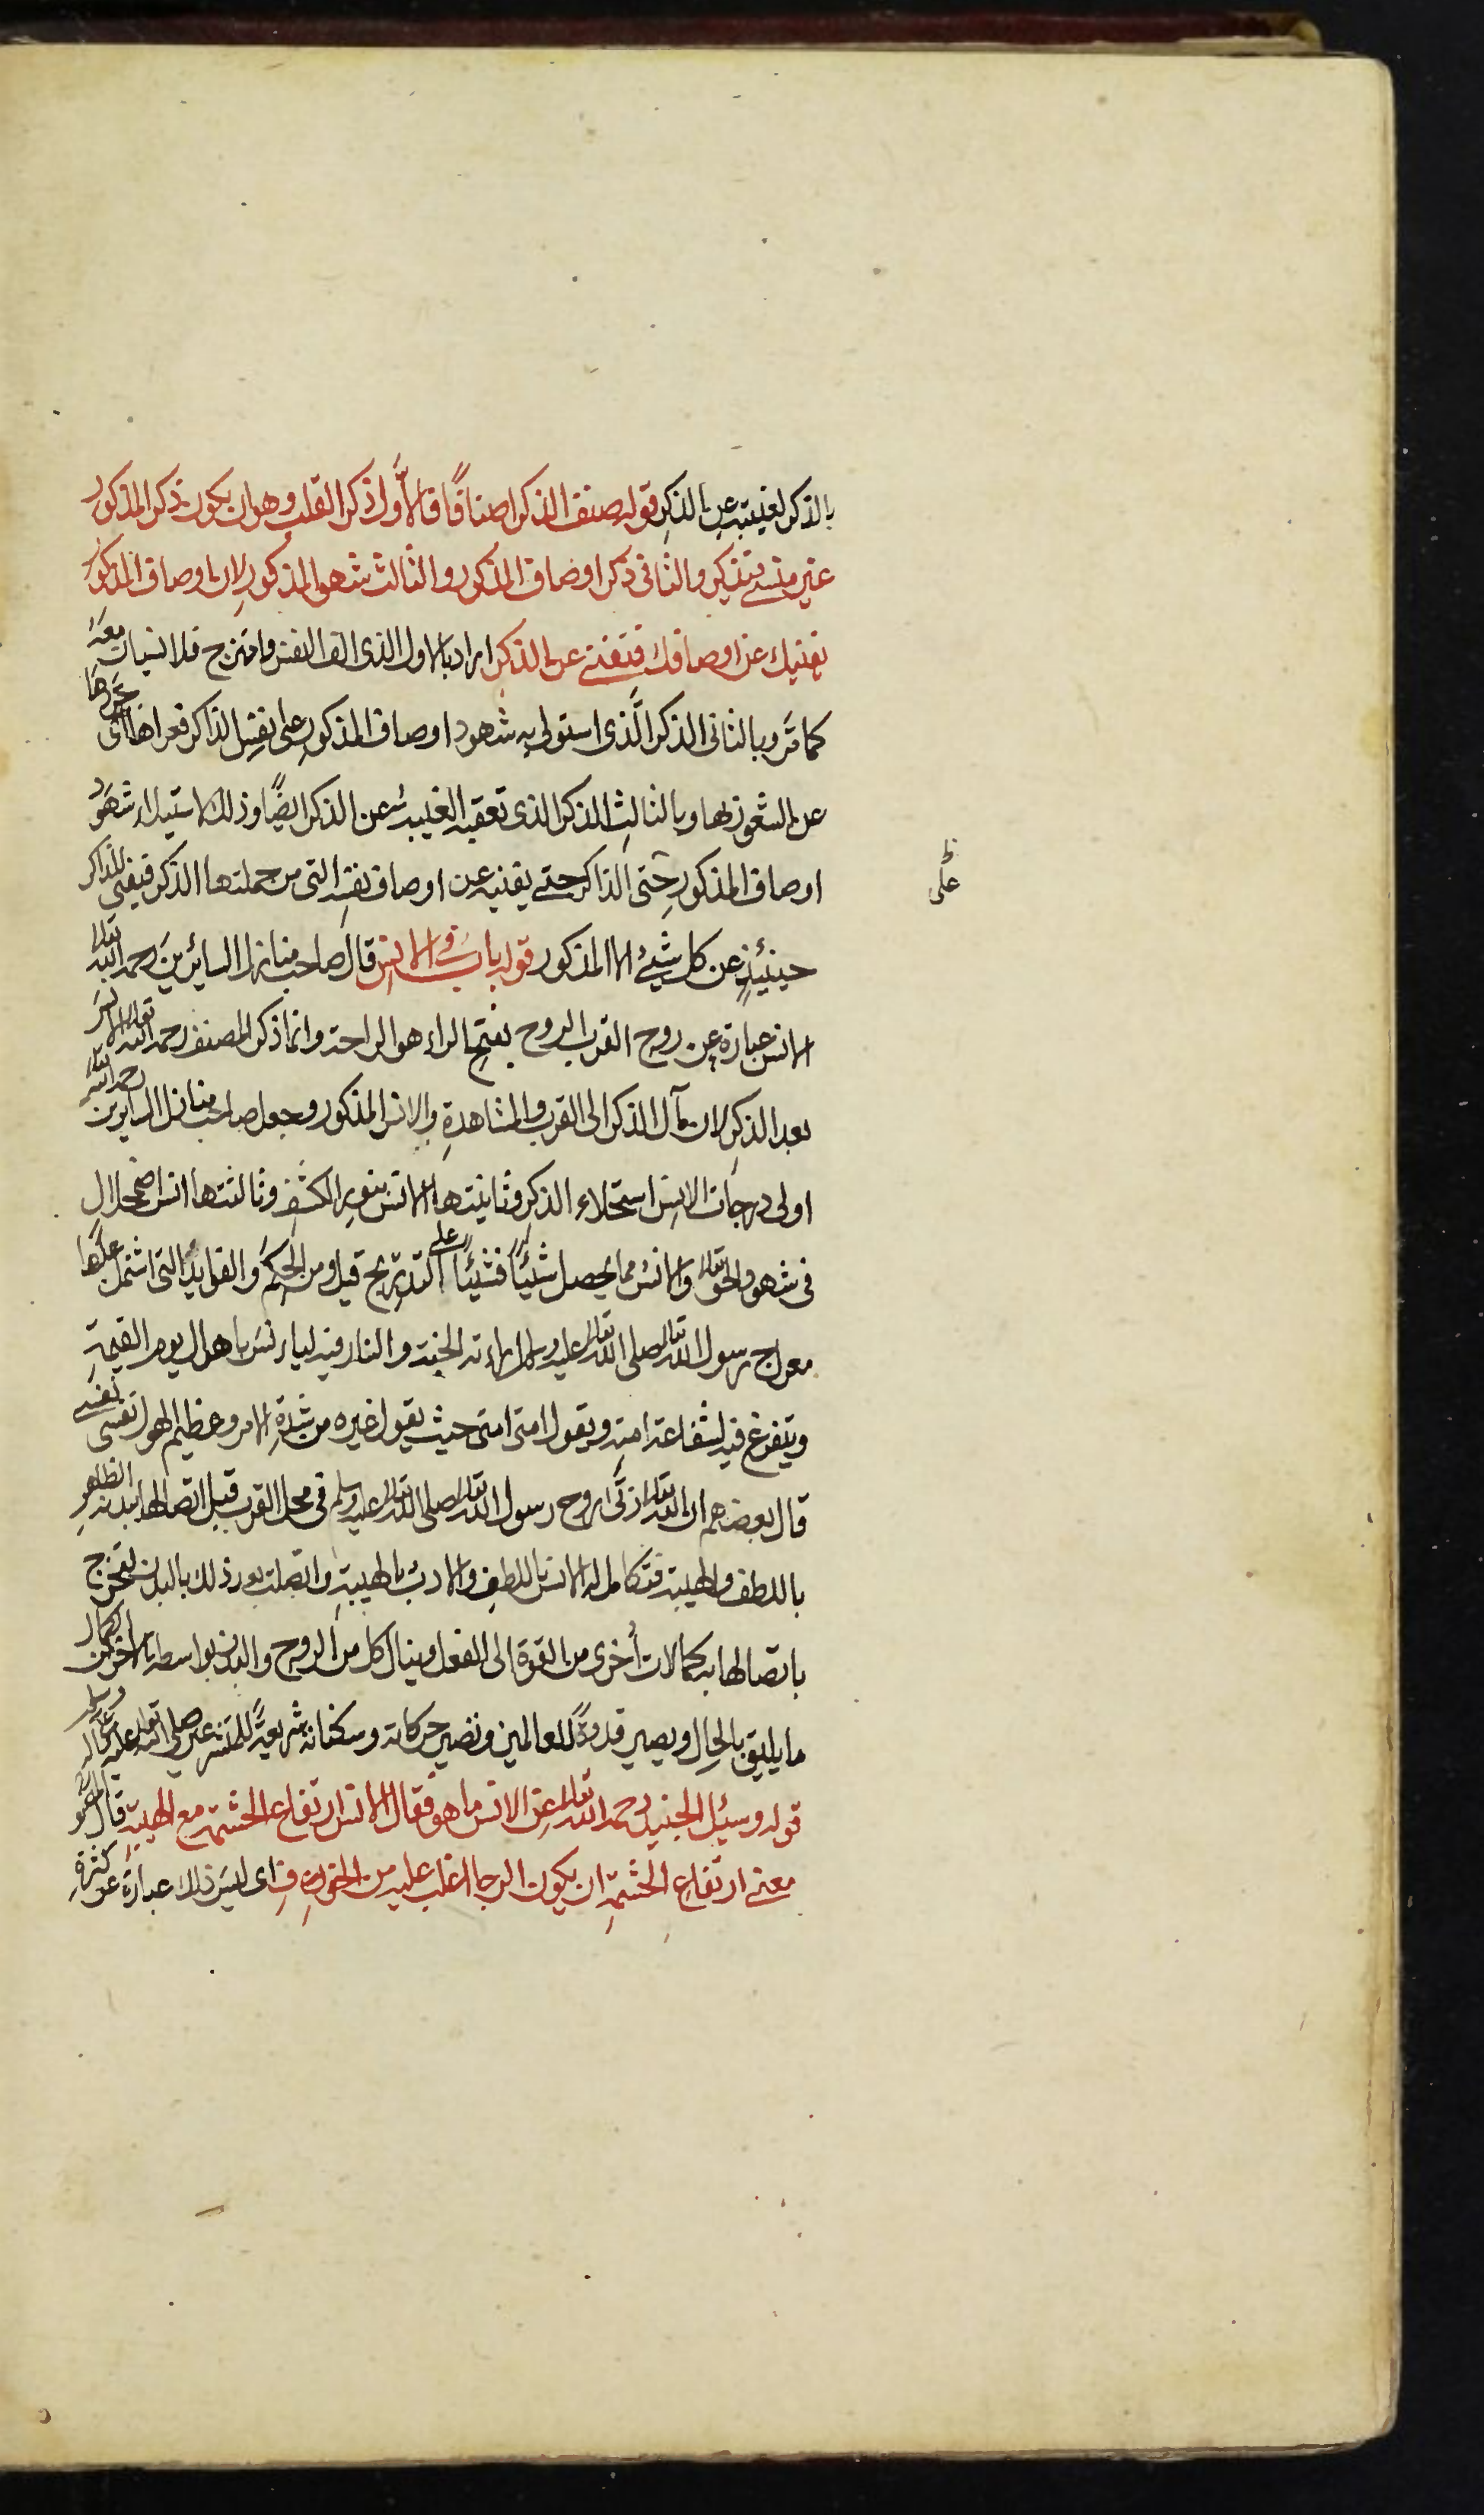 بالذكر لغيبته عن الذكر قوله صنف الذكر اصنافًا فالأوّل ذكر القلب وهو ان يكون ذكر المذكور
غير منسي فتذكر والثانى ذكر اوصاف المذكور والثالث شهود المذكور لان اوصاف المذكور
تفنيك عن اوصافك فتفنى عن الذكر اراد بالاول الذى الف النفس وامتزج فلا نسيان معه
كما مَر وبالثانى الذكر الَّذى استولى به شهود اوصاف المذكور على نفس الذاكر فعراها اى جَرّدها
عن الشعور بها وبالثالث الذكر الذى تعقبه الغيبة عن الذكر ايضًا وذلك لاستيلاء شهود
اوصاف المذكور حتى الذاكر حتى يفنيه عن اوصاف نفسه التى من جملتها الذكر فيفنى الذاكر
ظ
على
حينئيذٍ عن كل شيئ الا المذكور قوله باب فى الانس قال صاحب منازل السائرين رحمه الله تعالى
الانس عبارة عن روح القرب الروح بفتح الراء هو الراحة وانما ذكر المصنف رحمه الله تعالى الانس
بعد الذكر لان مآل الذكر الى القرب والمشاهدة والانس المذكور وجعل صاحب منازل السايرين رحمه الله تعالى
اولى درجات الانس استحلاء الذكر وثانيتها الانس بنور الكشف وثالثتها انس اضمحلال
فى شهود الحق تعالى والانس مما يحصل شيئًا فشيئًا على التدريج قيل ومن الحِكَم والفوايد التى اشتمل عليها
معراج رسول الله تعالى صلى الله تعالى عليه وسلم اراءته الجنة والنار فيه ليانس باهوال يوم القيمة
ويتفرغ فيه لشفاعة امته ويقول امتى امتى حيث يقول غيره من شدة الامر وعظيم الهول نفسى نفسى
قال بعضهم ان الله تعالى زكّى روح رسول الله تعالى صلى الله تعالى عليه وسلم فى محل القرب قبل اتصالها ببدنه الظاهر
باللطف والهيبة فتكامل له الانس باللطف والادب بالهيبة واتصلت بعد ذلك بالبدن لتخرج
باتصالها به كمالات أخرى من القوة الى الفعل وينال كل من الروح والبدن بواسطة الاخر من الكمال
ما يليق بالحال ويصير قدوةً للعالمين وتصير حركاته وسكناته شريعةً للمتشرعين صلى الله تعالى عليه وعلى اله وسلم
قوله وسيل الجنيد رحمه الله تعالى عن الانس ما هو فقال الانس ارتفاع الحشمة مع الهيبة قال
معنى ارتفاع الحشمة ان يكون الرجا اغلب عليه من الخوف اى ليس ذلك عبارة عن كثرة